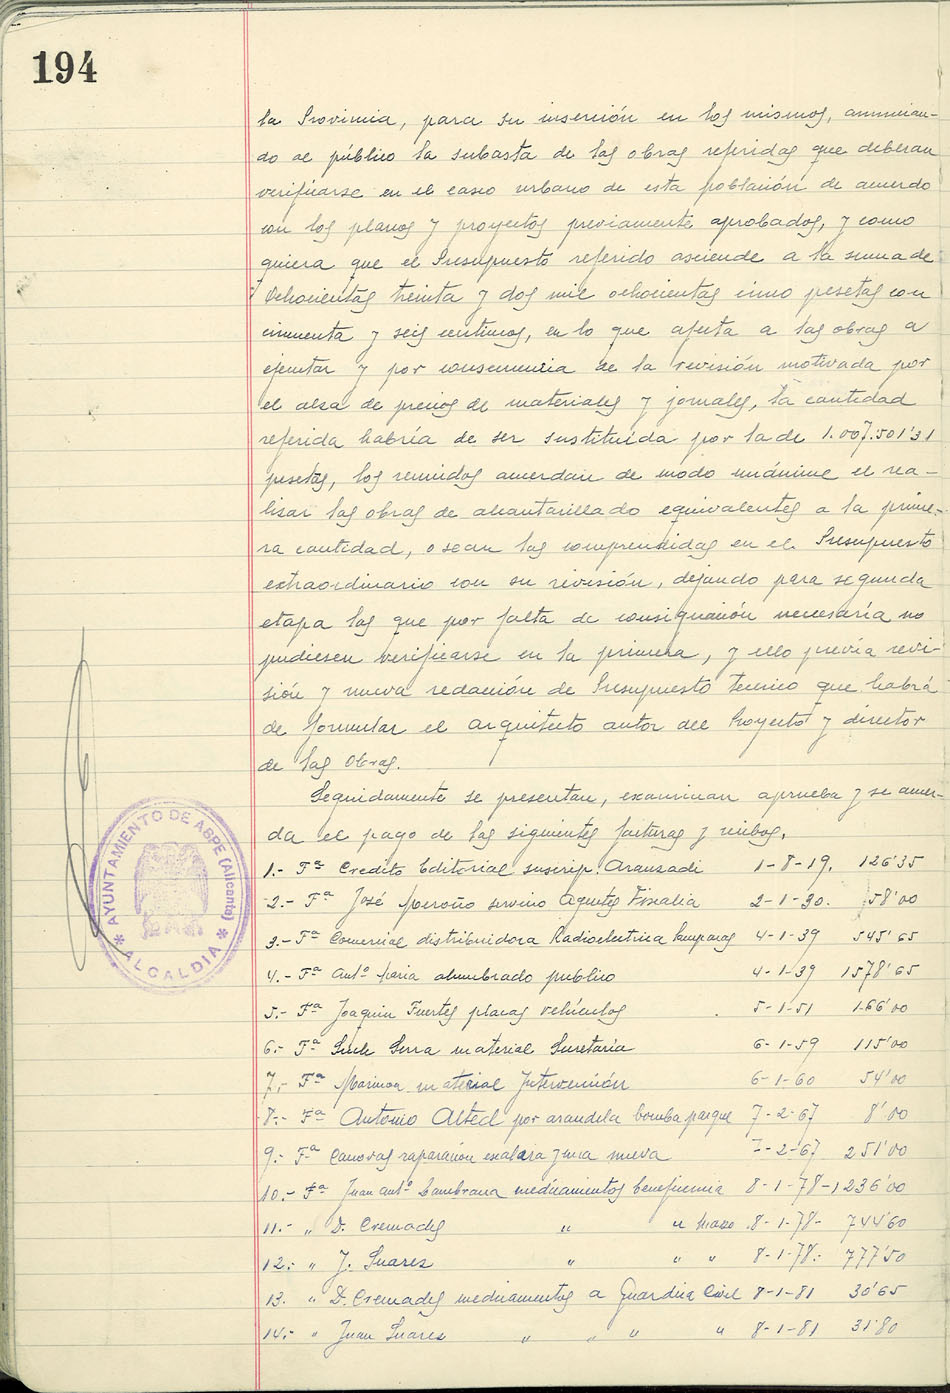 194
la Provincia, para su inserción en los mismos, anuncian-
do al público la subasta de las obras referidas que deberan
verificarse en el casco urbano de esta población de acuerdo
con los planos y proyectos previamente aprobados, y como
quiera que el Presupuesto referido asciende a la suma de
Ochocientas treinta y dos mil ochocientas cinco pesetas con
cincuenta y seis centimos, en lo que afecta a las obras a
ejecutar y por consecuencia de la revisión motivada por
el alza de precios de materiales y jornales, la cantidad
referida habría de ser sustituída por la de 1.007.501'31
pesetas, los reunidos acuerdan de modo unánime el rea-
lizar las obras de alcantarillado equivalentes a la prime-
ra cantidad, o sean las comprendidas en el Presupuesto
extraordinario con su revisión, dejando para segunda
etapa las que por falta de consignación necesaría no
pudiesen verificarse en la primera, y ello previa revi-
sión y nueva redacción de Presupuesto tecnico que habrá
de formular el arquitecto autor del Proyecto y director
de las Obras.
Seguidamente se presentan, examinan aprueba y se acuer-
da el pago de las siguientes facturas y recibos.
1.- Fª Credito Editorial suscrip. Aranzadi 1-8-19. 126'35
2.- Fª José Meroño servicio Agentes Fiscalia 2-1-30. 58'00
3.- Fª Comercial distribuidora Radioelectrica lamparas 4-1-39 545'65
4.- Fª Antº María alumbrado publico 4-1-39 1578'65
5.- Fª Joaquin Fuertes placas vehículos 5-1-51 166'00
6.- Fª Serra material Secretaría 6-1-59 115'00
7.- Fª Marimon material Intervención 6-1-60 54'00
8.- Fª Antonio Alted por arandela bomba parque 7-2-67 8'00
9.- Fª Canovas raparación escalera y una nueva 7-2-67 251'00
10.- Fª Juan Antº Zambrana medicamentos beneficencia 8-1-78-1236'00
11.- " D. Cremades " " Mayo 8-1-78- 744'60
12.- " J. Suarez " " " 8-1-78.- 777'50
13. " D. Cremades medicamentos a Guardia Civil 8-1-81 30'65
14.- " Juan Suarez " " " " 8-1-81 31'80
AYUNTAMIENTO DE ASPE (Alicante)
* ALCALDIA *